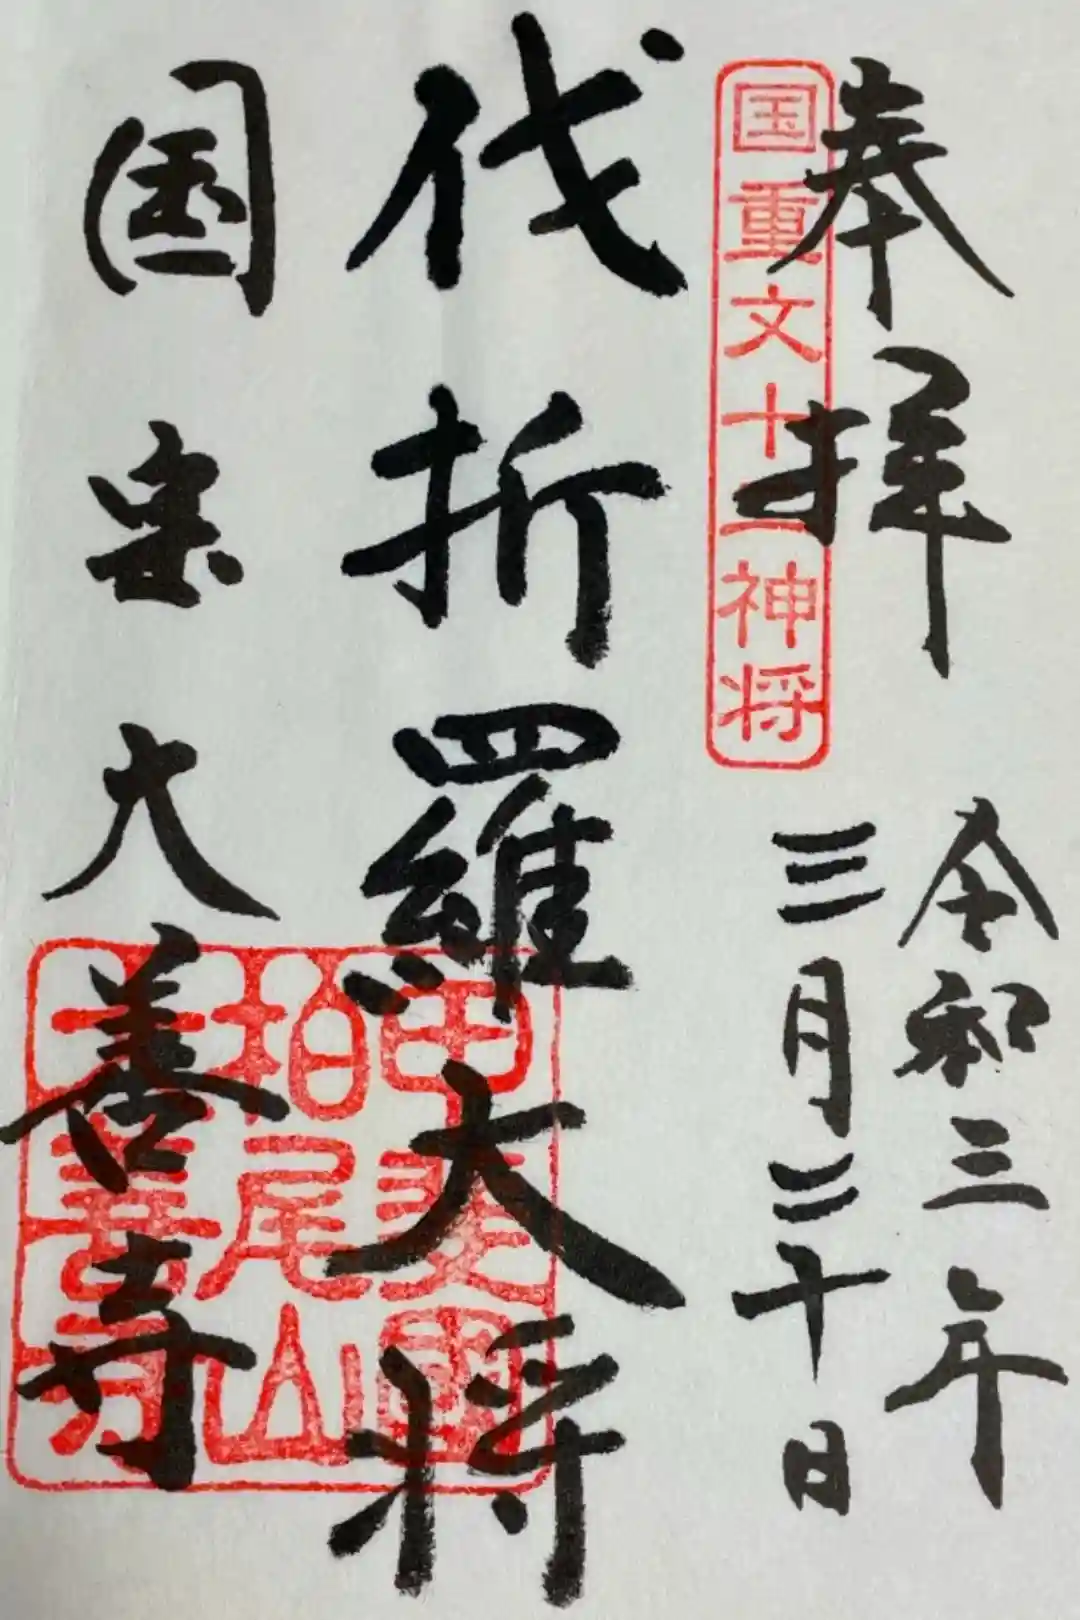 奉拝
令和三年
三月二十日
国重文十二神将
伐折羅大将
甲斐國
柏尾山
大善寺
国宝大善寺